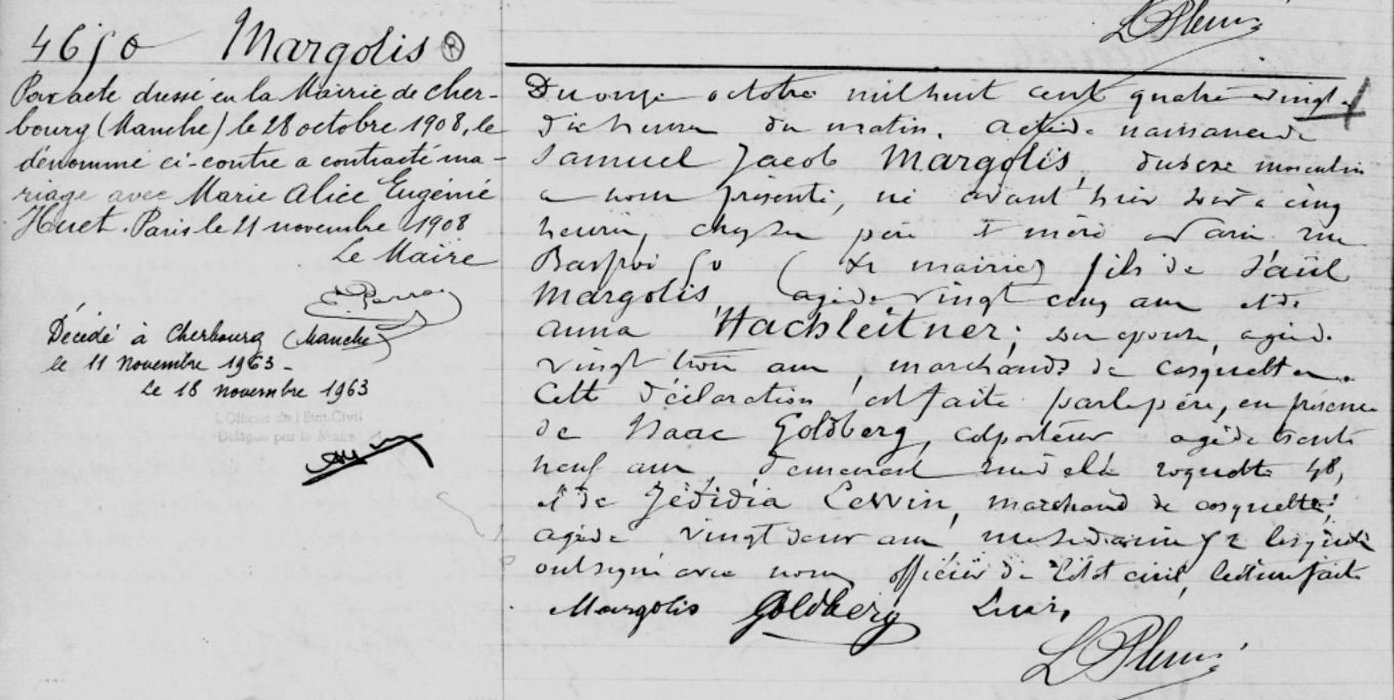 4650 Margolis
Par acte dressé en la Mairie de Cher-
bourg (Manche) le 28 octobre 1908, le
dénommé ci-contre a contracté ma-
riage avec Marie Alice Eugénie
Huet. Paris le 21 novembre 1908
Le Maire
Décédé à Cherbourg (Manche)
le 11 Novembre 1963 -
Le 18 novembre 1963
L'Officier de l'Etat-Civil
Délégué par le Maire
Du onze octobre mil huit cent quatre vingt
dix heures du matin. Acte de naissance de
Samuel Jacob Margolis, du sexe masculin
a nous présenté, né avant hier soir à cinq
heures, chez ses père et mère à Paris rue
Basfroi 50 ( mairie) fils de Saül
Margolis, âgé de vingt cinq ans et de
Anna Wachsleitner, son épouse, âgée de
vingt trois ans, marchands de casquettes.
Cette déclaration est faite par le père, en présence
de Isaac Goldberg, colporteur âgé de trente
neuf ans, demeurant rue de la roquette 48,
et de Jédidia Lewin, marchand de casquettes,
âgé de vingt deux ans, lesquels
ont signé avec nous officier de l'état civil, lecture faite
Margolis Goldberg